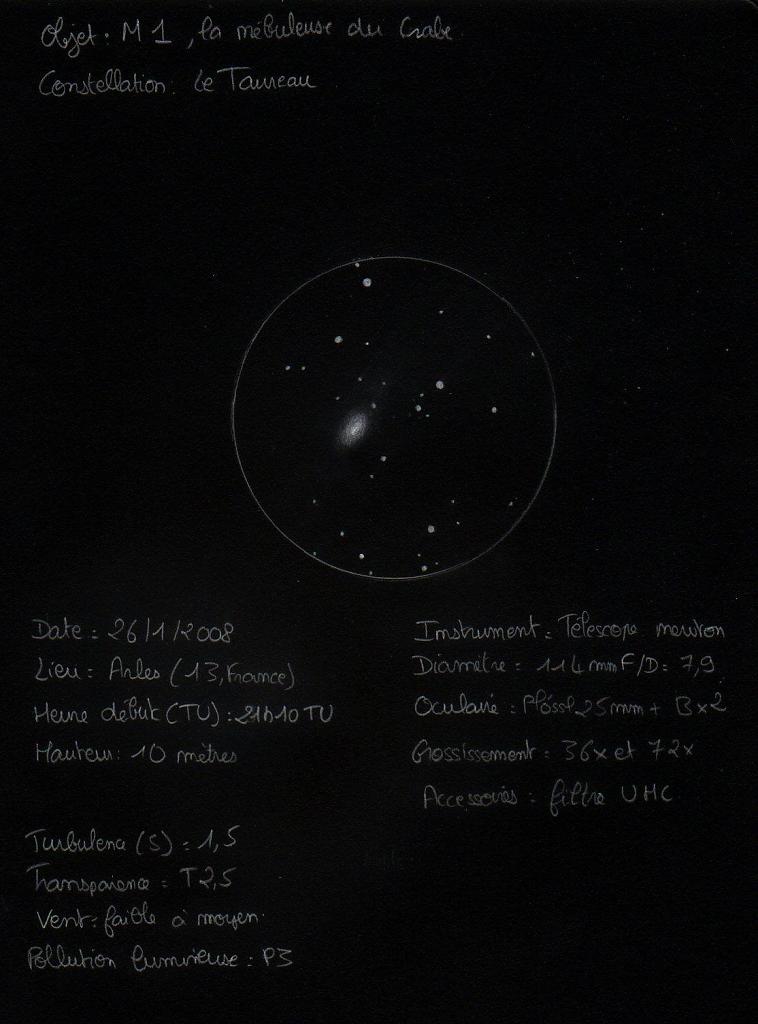 Objet : M 1 , la nébuleuse du Crabe
Constellation : Le Taureau
Date : 26/1/2008
Lieu : Arles (13, France)
Heure début (TU) : 21h10 TU
Hauteur : 10 mètres
Turbulence (S) : 1,5
Transparence : T2,5
Vent : faible à moyen
Pollution lumineuse : P3
Instrument : Télescope newton
Diamètre : 114 mm F/D : 7,9
Oculaire : Plössl 25mm + Bx2
Grossissement : 36x et 72x
Accessoires : filtre UHC